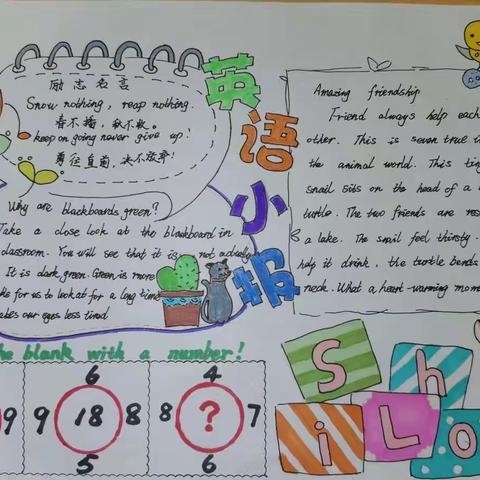 励志名言
Snow nothing, reap nothing.
春不播,秋不收。
keep on going never give up!
勇往直前,决不放弃!
英语小报
Why are blackboards green?
Take a close look at the blackboard in
classroom. You will see that it is not actually
It is dark green. Green is more
for us to look at for a long time
our eyes less tired
Amazing friendship
Friend always help each
other. This is seven true in
the animal world. This tiny
snail sits on the head of a
turtle. The two friends are
a lake. The snail feel thirsty.
help it drink, the turtle bends
neck. What a heart-warming
the blank with a number!
9
6
9 18 8
5
4
8 ? 7
6
Sh
iLo